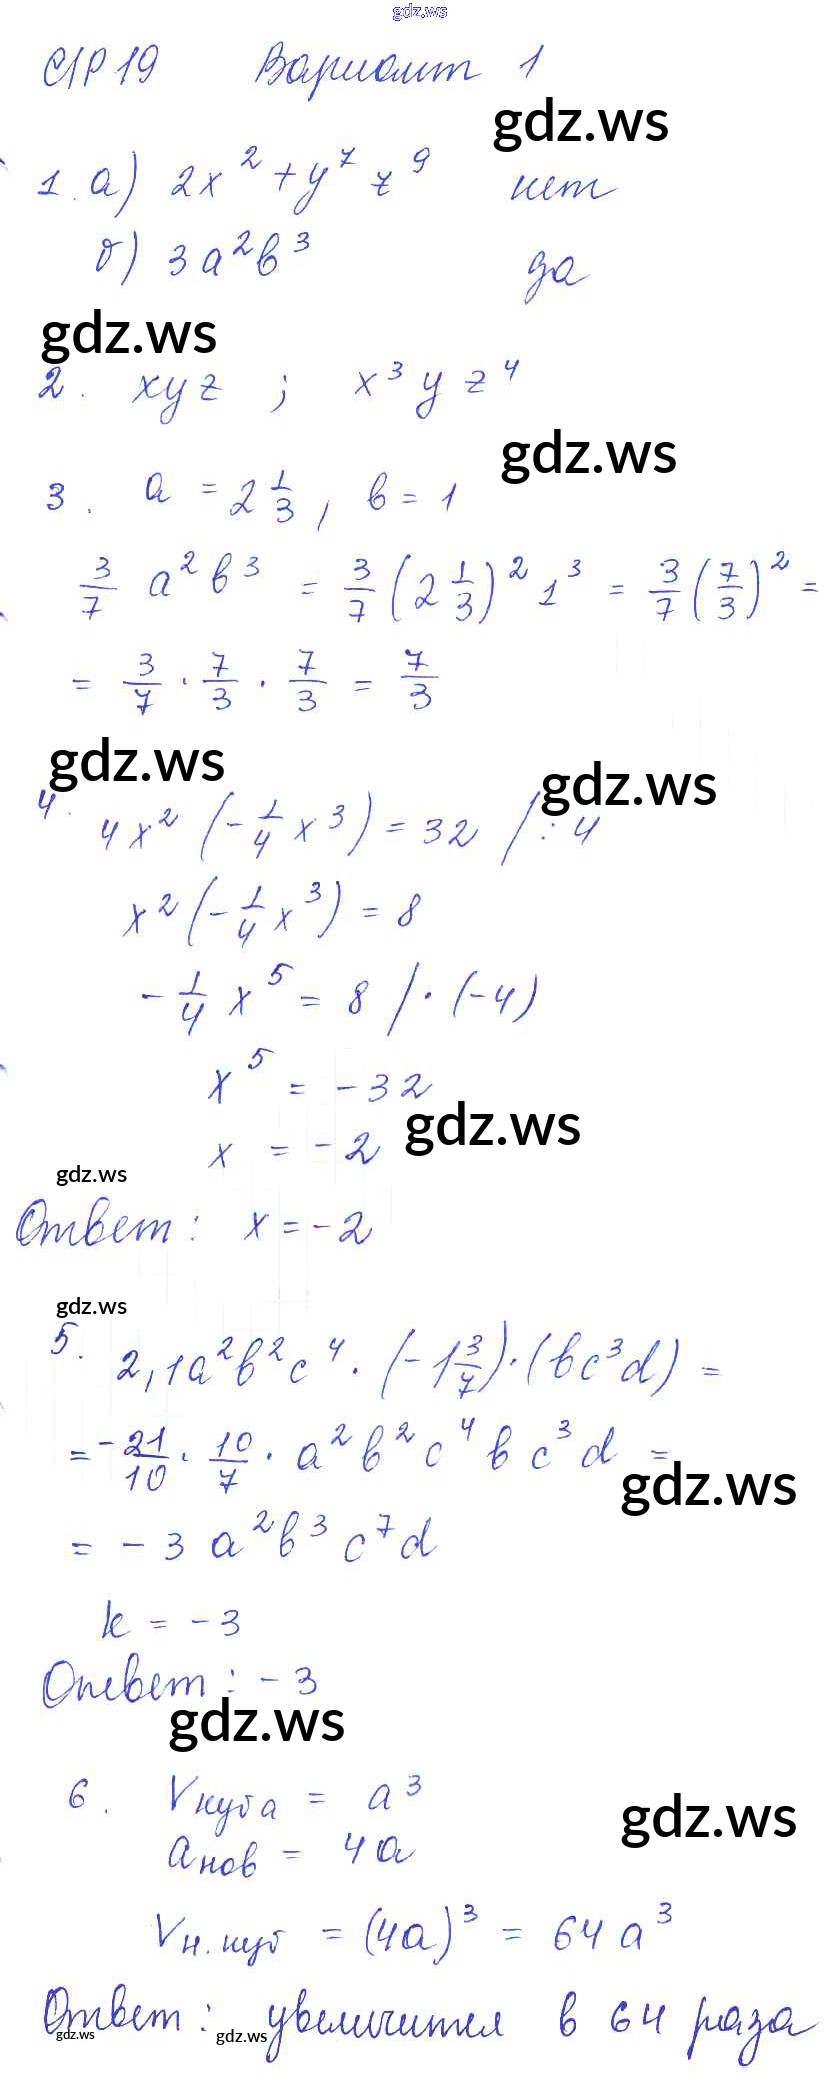 gdz.ws
С/Р 19 Вариант 1
gdz.ws
1. а) 2x² + y⁷ z⁹ нет
б) 3a²b³ да
gdz.ws
2. xyz ; x³ y z⁴
gdz.ws
3. a = 2 1/3, b = 1
3/7 a² b³ = 3/7 (2 1/3)² 1³ = 3/7 (7/3)² =
= 3/7 · 7/3 · 7/3 = 7/3
gdz.ws
gdz.ws
4. 4x² (-1/4 x³) = 32 / : 4
x² (-1/4 x³) = 8
-1/4 x⁵ = 8 / · (-4)
x⁵ = -32
gdz.ws
x = -2
gdz.ws
Ответ: x = -2
gdz.ws
5. 2,1a²b²c⁴ · (-1 3/7) · (bc³d) =
= -21/10 · 10/7 · a² b² c⁴ b c³ d =
gdz.ws
= -3 a² b³ c⁷ d
k = -3
Ответ: -3
gdz.ws
6. Vкуба = a³
gdz.ws
aнов = 4a
Vн.куб = (4a)³ = 64 a³
Ответ: увеличител в 64 раза
gdz.ws
gdz.ws